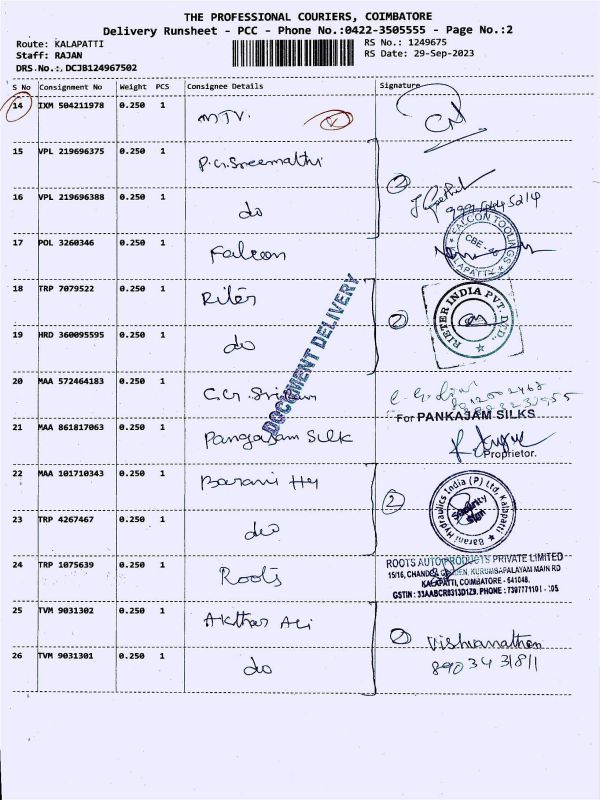 THE PROFESSIONAL COURIERS, COIMBATORE
Delivery Runsheet - PCC - Phone No.:0422-3505555 - Page No.:2
Route: KALAPATTI RS No.: 1249675
Staff: RAJAN RS Date: 29-Sep-2023
DRS.No.: DCJB124967502
S No Consignment No Weight PCS Consignee Details Signature
14 IXM 504211978 0.250 1 MTV.
15 VPL 219696375 0.250 1 P.G.Sreemathi
2
16 VPL 219696388 0.250 1 do
17 POL 3260346 0.250 1 Falcon
FALCON TOOLINGS
CBE
KALAPATTI
18 TRP 7079522 0.250 1 Riter
2 RIETER INDIA PVT. LTD.
19 HRD 360095595 0.250 1 do
DOCUMENT DELIVERY
20 MAA 572464183 0.250 1
For PANKAJAM SILKS
21 MAA 861817063 1 0.250 Pangajam Silk
Proprietor.
22 MAA 101710343 0.250 1 Barani Hy
2 Barani Hydraulics India (P) Ltd, Kalapatti
Security Sign
23 TRP 4267467 0.250 1 do
24 TRP 1075639 0.250 1 Roots
ROOTS AUTO PRODUCTS PRIVATE LIMITED
KURUMBAPALAYAM MAIN RD
KALAPATTI, COIMBATORE - 641048.
25 TVM 9031302 0.250 1 Akthar Ali
Vishwanathan
8903431811
26 TVM 9031301 0.250 1 do